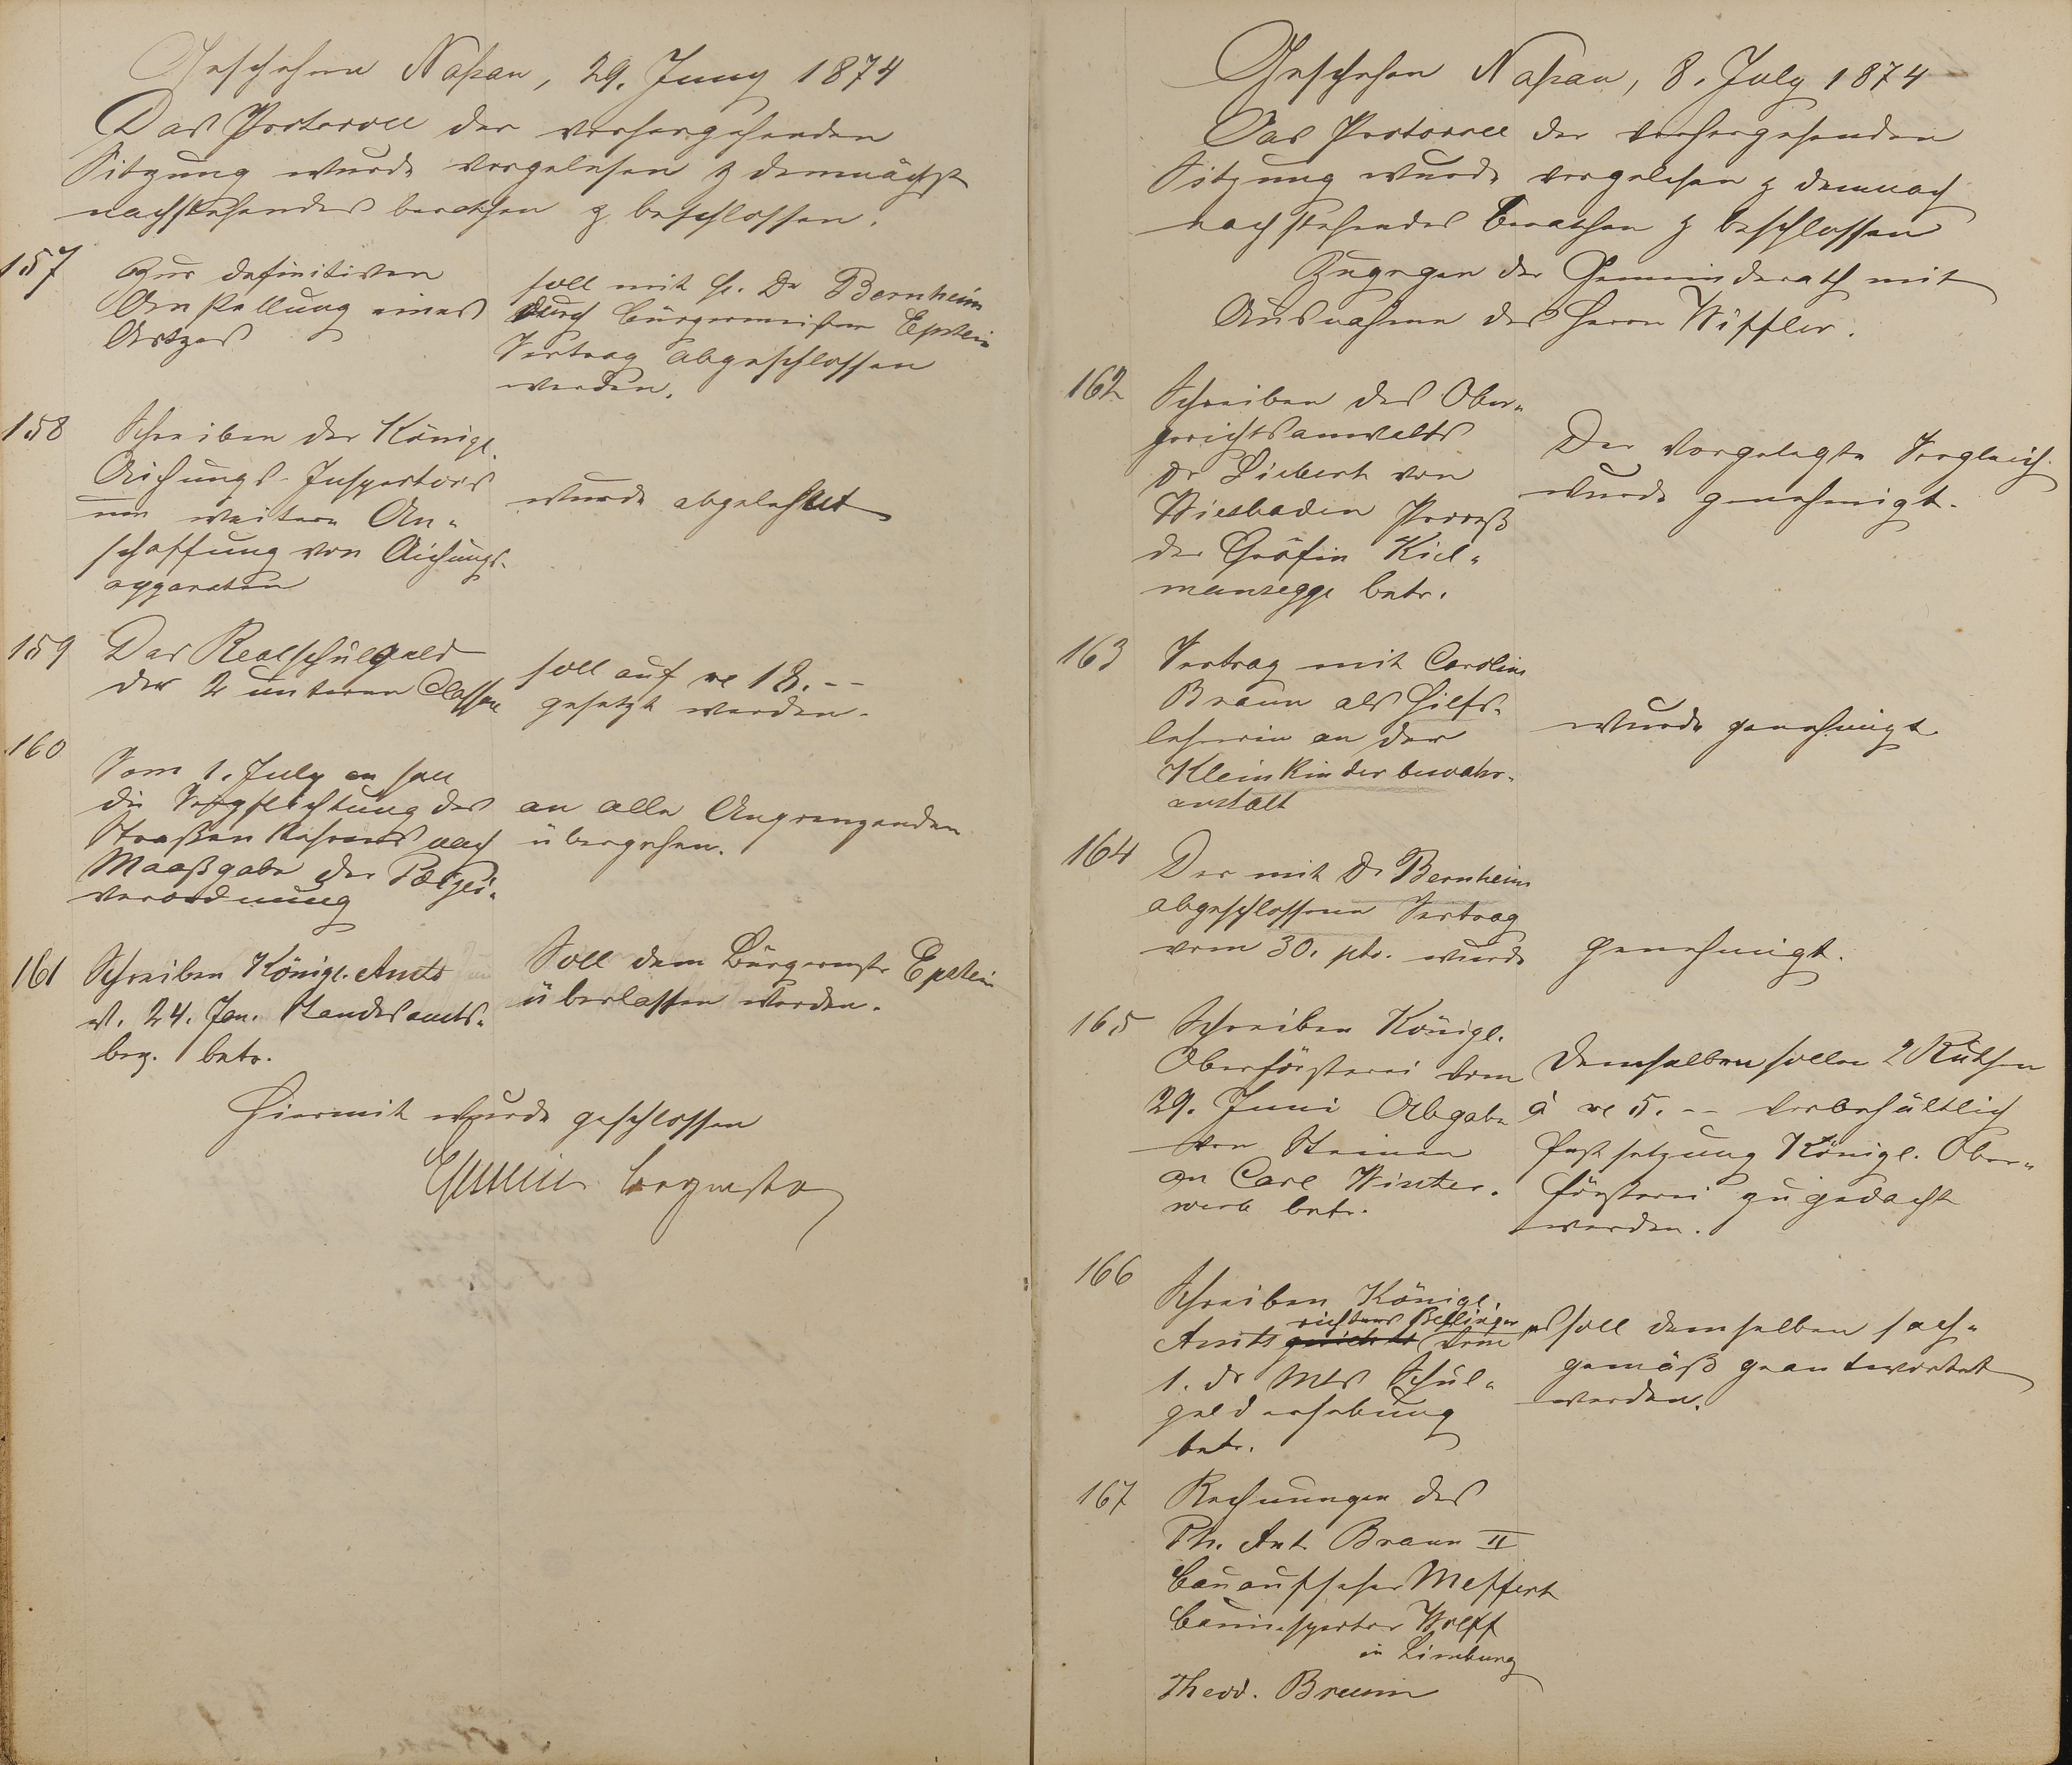 Geschehen Naßau, 29. Juny 1874
Das Protocoll der vorhergehenden
Sitzung wurde vorgelesen & demnächst
nachstehendes berathen & beschlossen.
157
Zur definitiven
Anstellung eines
Arztes
soll mit H. Dr Bernheim
durch Bürgermeister Epstein
Vertrag abgeschlossen
werden.
158
Schreiben des Königl.
Aichungs-Inspectors
um weitere An-
schaffung von Aichungs-
apparaten
wurde abgelehnt
159
Das Realschulgeld
der 2 unteren Classen
soll auf 18.--
gesetzt werden.
160
Vom 1. July an soll
die Verpflichtung des
Straßenkehrens nach
Maaßgabe der Polizei-
verordnung
an alle Angrenzenden
übergehen.
161
Schreiben Königl. Amts
v. 24. Jan. Standesamts-
bez. betr.
Soll dem Bürgermstr Epstein
überlassen werden.
Hiermit wurde geschlossen
Epstein Bürgmstr
Geschehen Naßau, 8. July 1874
Das Protocoll der vorhergehenden
Sitzung wurde vorgelesen & demnach
nachstehendes berathen & beschlossen
Zugegen der Gemeinderath mit
Ausnahme des Herrn Wiffler.
162
Schreiben des Ober-
gerichtsanwalts
Dr Siebert von
Wiesbaden Proceß
der Gräfin Kiel-
mansegge betr.
Der vorgelegte Vergleich
wurde genehmigt.
163
Vertrag mit Carolin
Braun als Hilfs-
lehrerin an der
Kleinkinderbewahr-
anstalt
wurde genehmigt
164
Der mit Dr Bernheim
abgeschlossene Vertrag
vom 30. pto. wurde
genehmigt.
165
Schreiben Königl.
Oberförsterei vom
29. Juni Abgabe
von Steinen
an Carl Winter-
werb betr.
Demselben sollen 2 Ruthen
à 5.-- vorbehältlich
Festsetzung Königl. Ober-
försterei zugedacht
werden.
166
Schreiben Königl.
richters Bellinger
Amtsgerichts vom
1. ds Mts Schul-
gelderhebung
betr.
es soll demselben sach-
gemäß geantwortet
werden.
167
Rechnungen des
Ph. Ant. Braun II
Bauaufseher Meffert
Bauinspector Wolff
in Limburg
Theod. Bruim